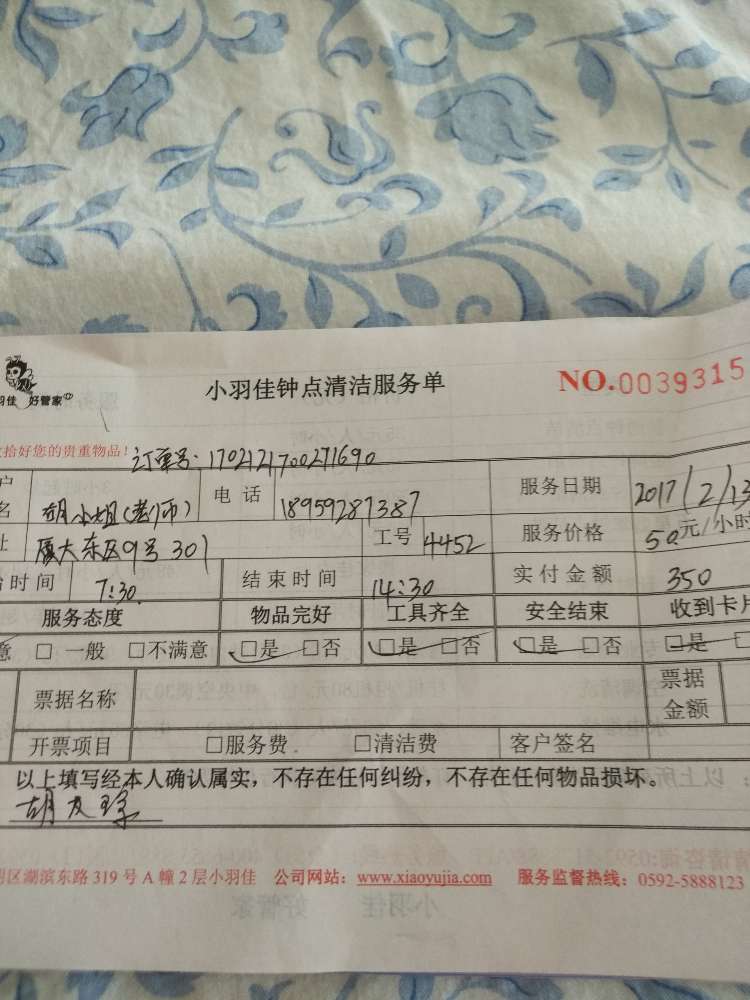 小羽佳钟点清洁服务单 NO.0039315
羽佳 好管家
收拾好您的贵重物品！ 订单号：170212170027169 0
户名 胡小姐(老师) 电话 18959287387 服务日期 2017/2/13
址 厦大东区9号301 工号 4452 服务价格 50元/小时
始时间 7:30 结束时间 14:30 实付金额 350
服务态度 物品完好 工具齐全 安全结束 收到卡片
意 □一般 □不满意 □是 □否 □是 □否 □是 □否 □是
票据名称 票据金额
开票项目 □服务费 □清洁费 客户签名
以上填写经本人确认属实，不存在任何纠纷，不存在任何物品损坏。
胡友
明区湖滨东路319号A幢2层小羽佳 公司网站：www.xiaoyujia.com 服务监督热线：0592-5888123